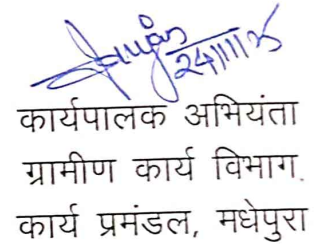 24/11/25
कार्यपालक अभियंता
ग्रामीण कार्य विभाग.
कार्य प्रमंडल, मधेपुरा